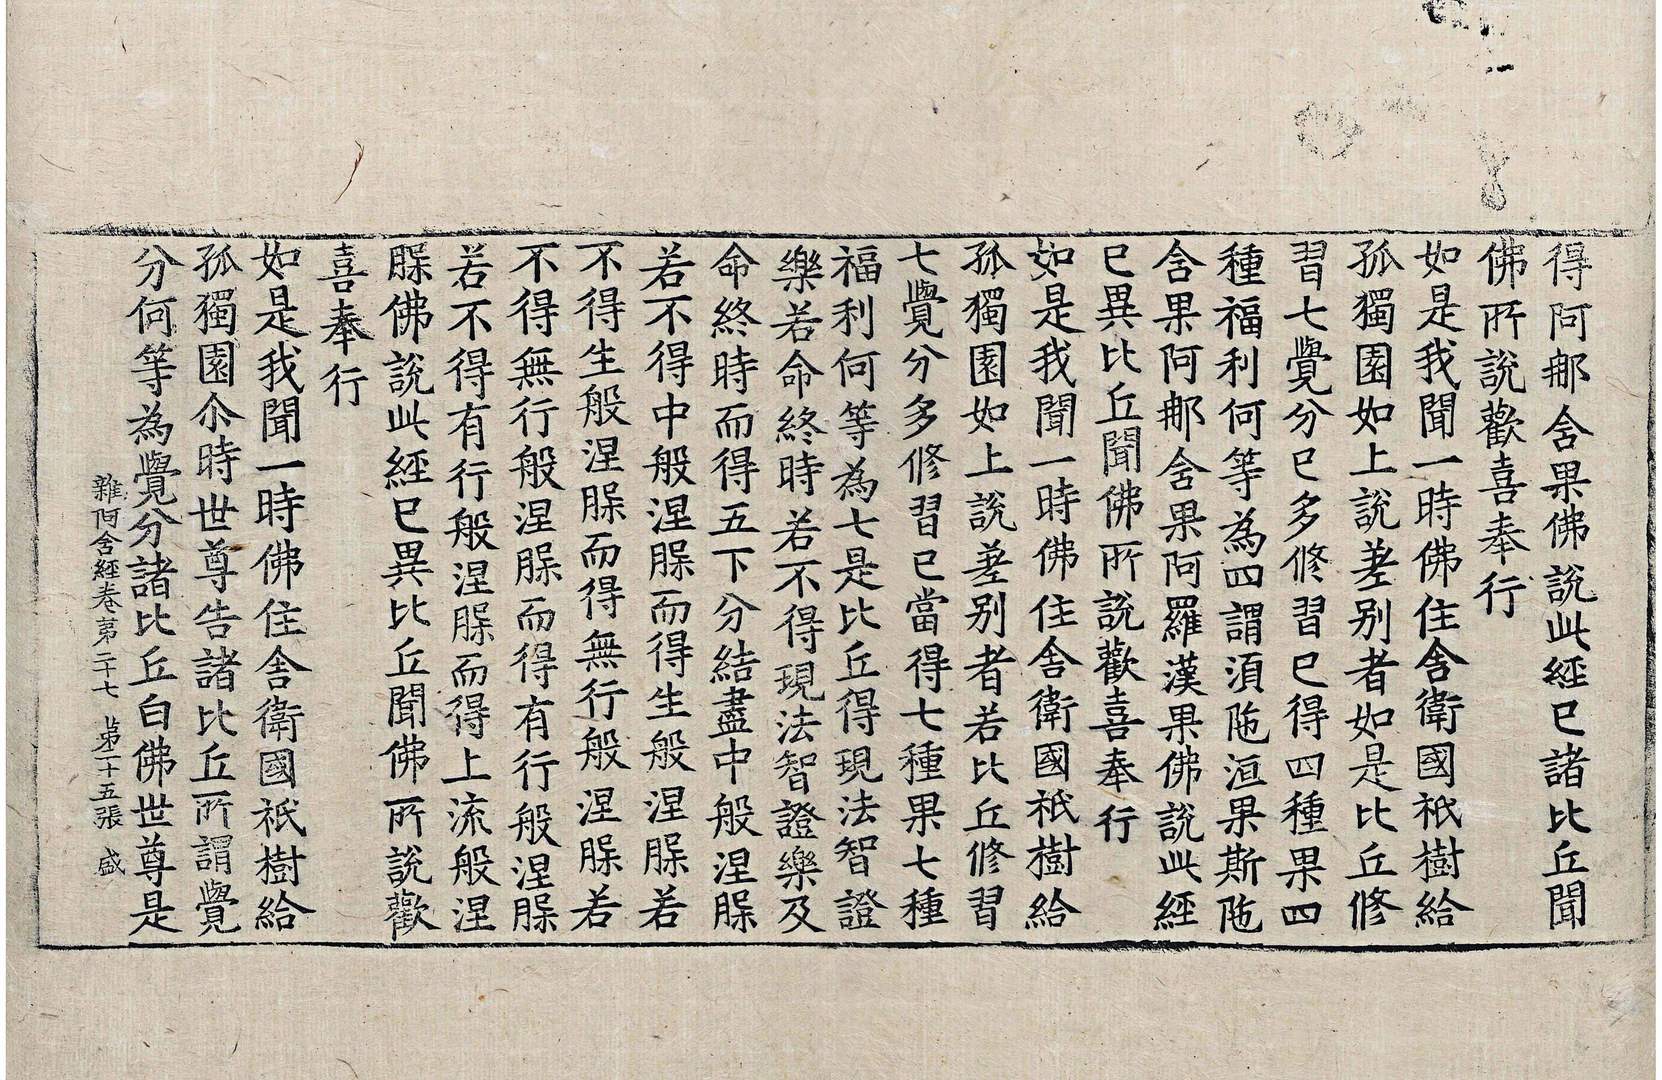 得阿那舍果佛說此經已諸比丘聞
佛所說歡喜奉行
如是我聞一時佛住舍衛國祇樹給
孤獨園如上說差別者如是比丘修
習七覺分已多修習已得四種果四
種福利何等為四謂須陁洹果斯陁
含果阿那舍果阿羅漢果佛說此經
已異比丘聞佛所說歡喜奉行
如是我聞一時佛住舍衛國祇樹給
孤獨園如上說差別者若比丘修習
七覺分多修習已當得七種果七種
福利何等為七是比丘得現法智證
樂若命終時若不得現法智證樂及
命終時而得五下分結盡中般涅槃
若不得中般涅槃而得生般涅槃若
不得生般涅槃而得無行般涅槃若
不得無行般涅槃而得有行般涅槃
若不得有行般涅槃而得上流般涅
槃佛說此經已異比丘聞佛所說歡
喜奉行
如是我聞一時佛住舍衛國祇樹給
孤獨園尒時世尊告諸比丘所謂覺
分何等為覺分諸比丘白佛世尊是
雜阿含經卷第二十七 第二十五張 盛